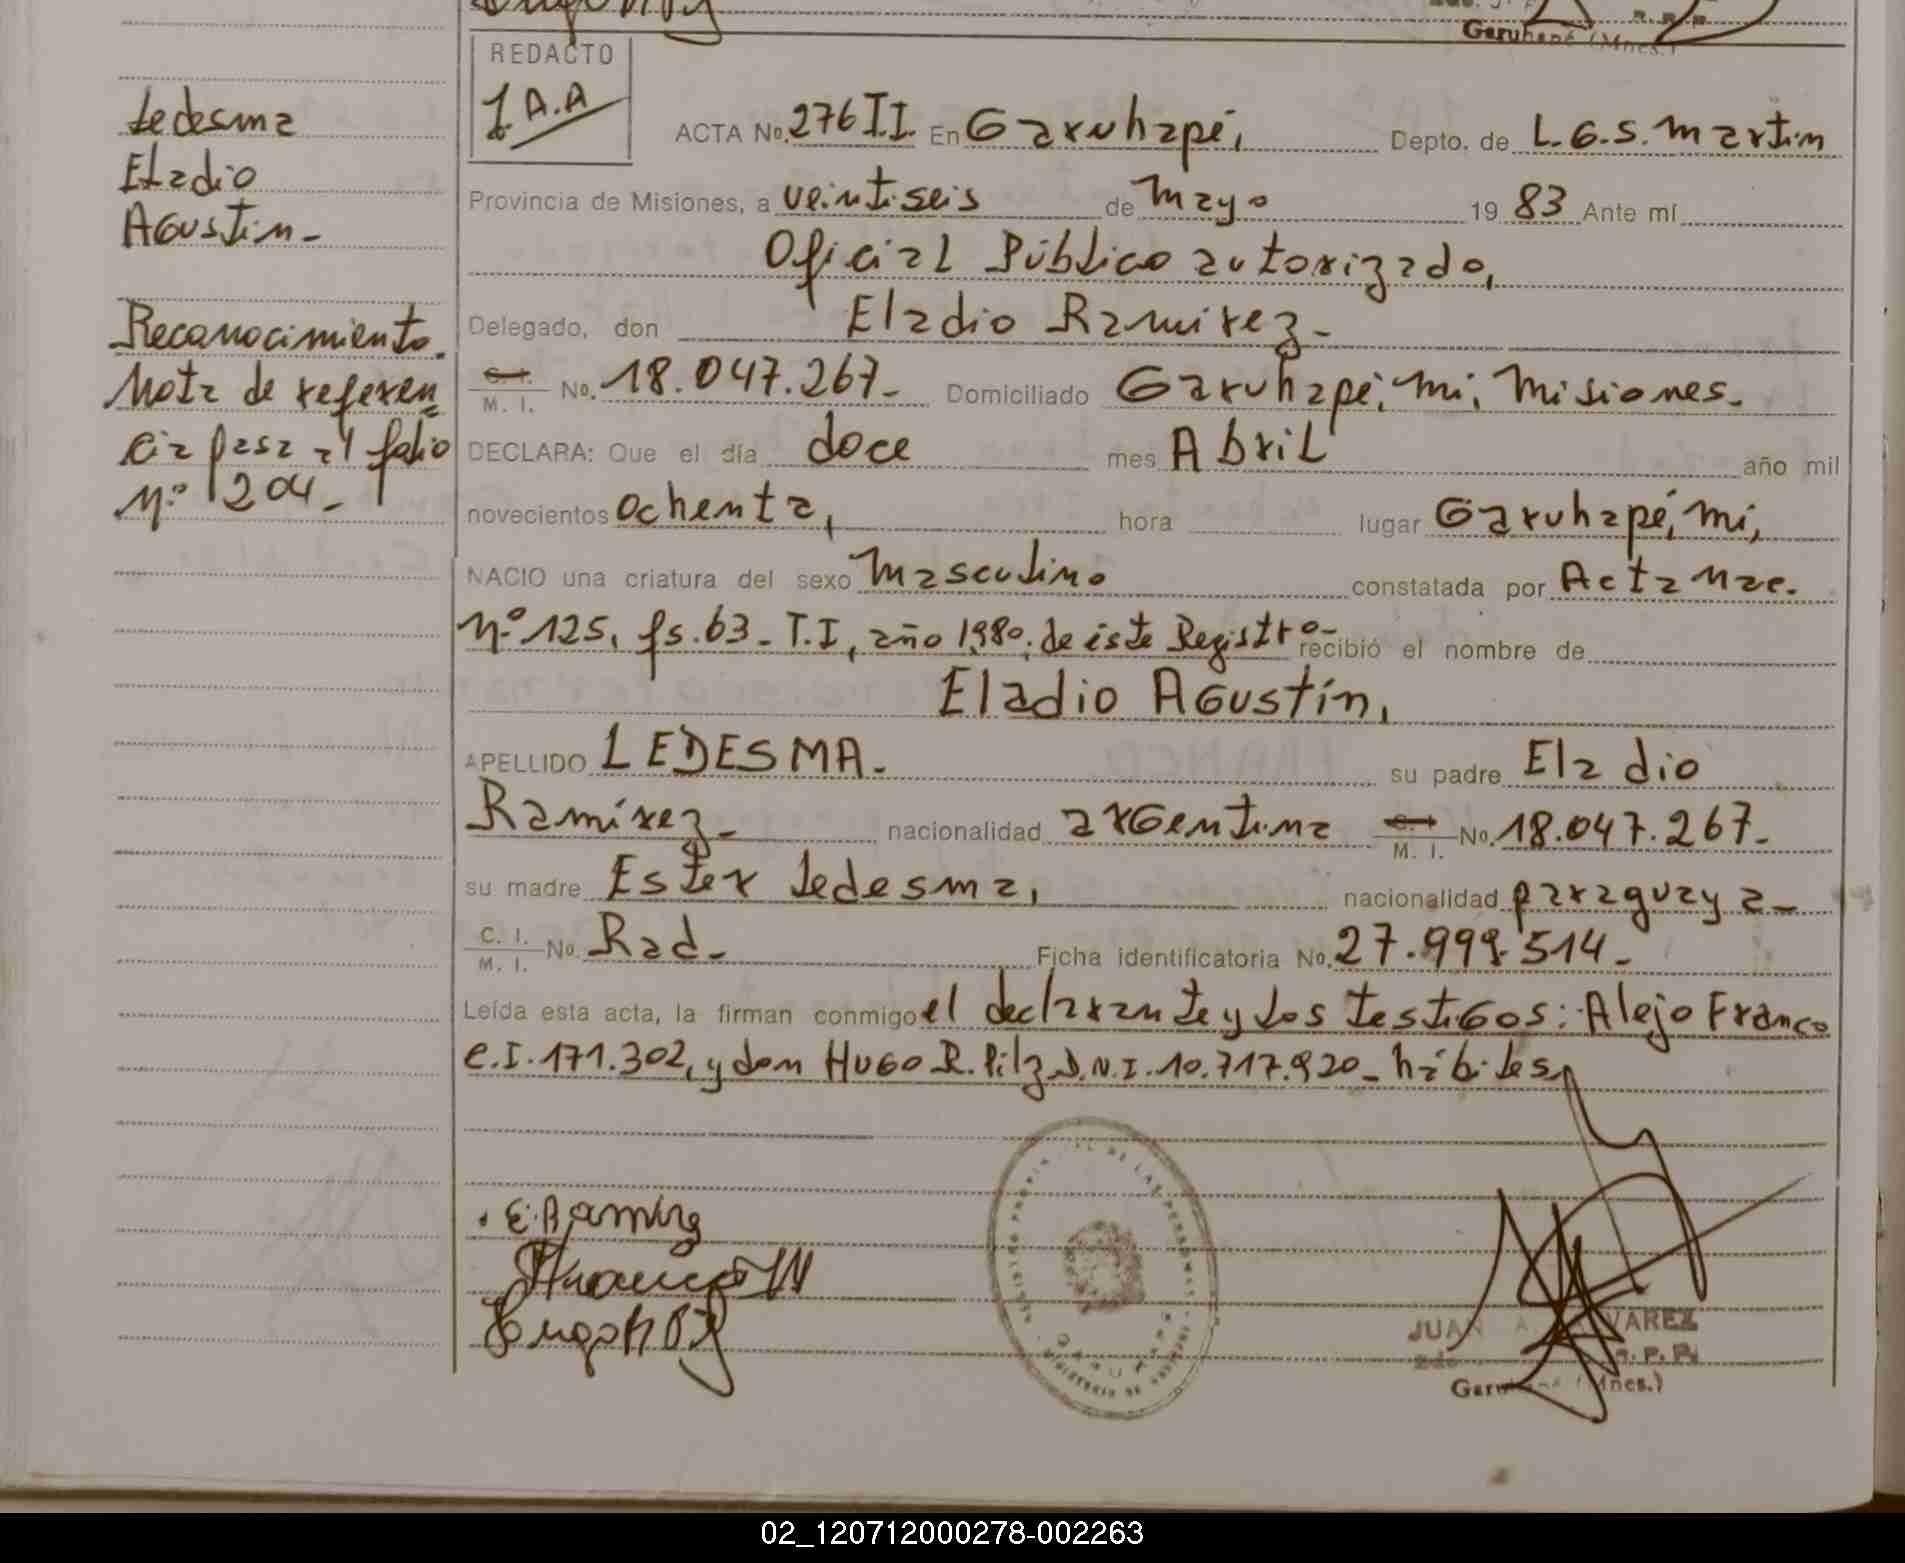 Garuhapé (Mnes.)
REDACTO
J A.A
ACTA No. 276 II. En Garuhapé, Depto. de L.G.S. Martin
Provincia de Misiones, a veintiseis de Mayo 19 83 Ante mí
Oficial Público autorizado,
Delegado, don Eladio Ramirez-
C. I. M. I. No. 18.047.267- Domiciliado Garuhapé, mi, Misiones.
DECLARA: Que el día doce mes Abril año mil
novecientos ochenta, hora lugar Garuhapé, mi,
NACIO una criatura del sexo Masculino constatada por Acta Nac.
Nº 125, fs. 63- T.I, año 1980. de éste Registro- recibió el nombre de
Eladio Agustín,
APELLIDO LEDESMA- su padre Eladio
Ramírez- nacionalidad argentina C. I. M. I. No. 18.047.267-
su madre Ester Ledesma, nacionalidad paraguaya-
C. I. M. I. No. Rad- Ficha identificatoria No. 27.999.514-
Leída esta acta, la firman conmigo el declarante y los testigos: Alejo Franco
C.I. 171.302, y don Hugo R. Pilz D.N.I. 10.717.920- hábiles
Ledesma
Eladio
Agustin-
Reconocimiento.
Nota de referen
cia pasa al folio
Nº 204-
E. Ramirez
JUAN A. VAREZ
Garuhapé (Mnes.)
02_120712000278-002263